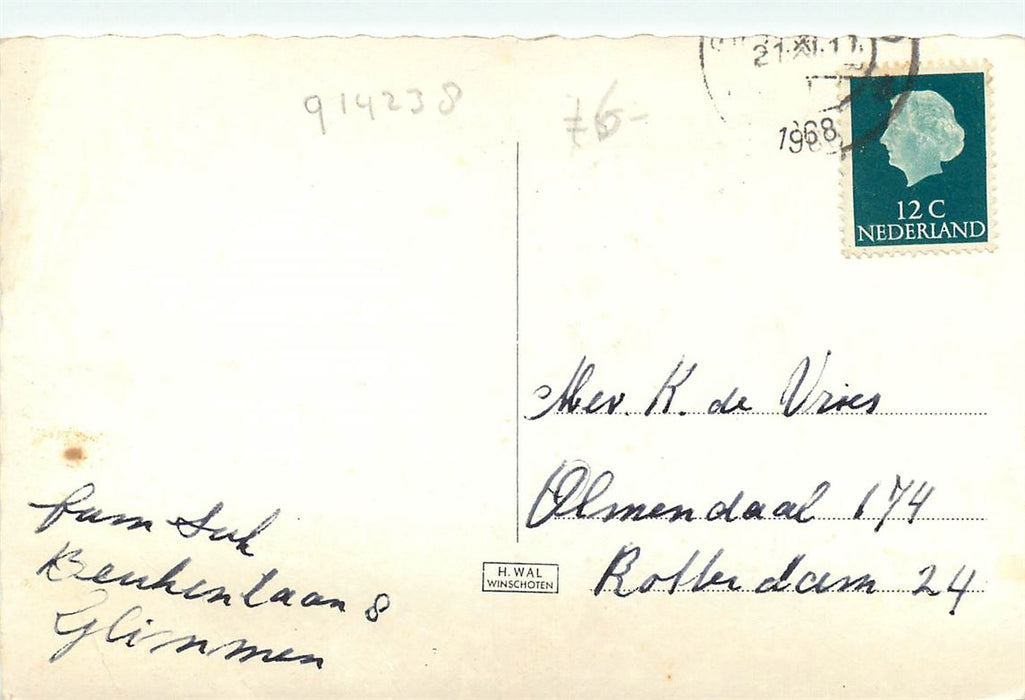 914238
76-
21.XI.11
1968
12 C
NEDERLAND
Mev. K. de Vries
Olmendaal 174
Rotterdam 24
fam Suk
Beukenlaan 8
Glimmen
H. WAL
WINSCHOTEN